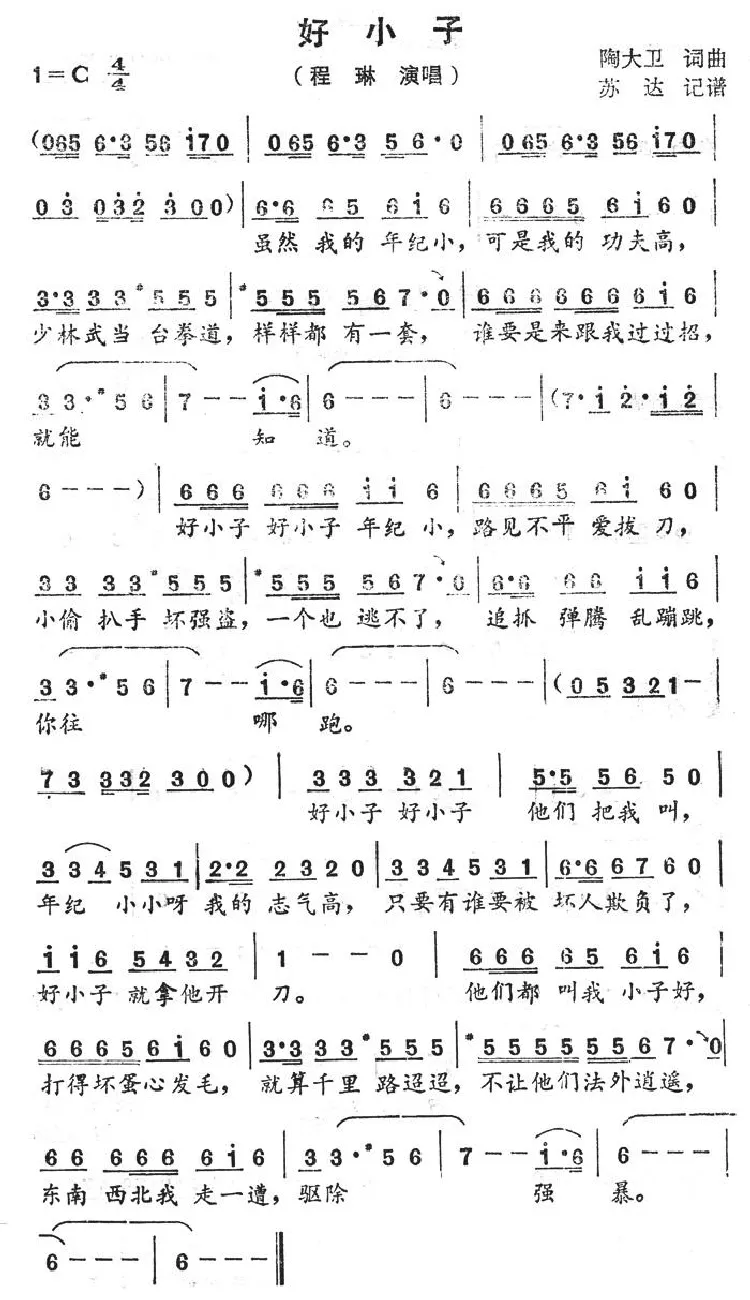 好小子
1=C 4/4 （程琳 演唱） 陶大卫 词曲
苏达 记谱
(065 6·3 56 i70 | 065 6·3 5 6·0 | 065 6·3 56 i70 |
03 032 300) | 6·6 65 6i6 | 6665 6i60 |
虽然 我的 年纪小，可是我的 功夫高，
3·3 33 #555 | #555 567·0 | 666 6666 6i6 |
少林武当 台拳道，样样都 有一套， 谁要是来跟我过过招，
33·#56 | 7--i·6 | 6--- | 6--- | (7·i2·i2 |
就能 知 道。
6---) | 666 666 ii6 | 6665 6i60 |
好小子 好小子 年纪 小，路见不平 爱拔 刀，
33 33 #555 | #555 567·0 | 6·6 66 ii6 |
小偷 扒手 坏强盗，一个也 逃不了， 追抓 弹腾 乱蹦跳，
33·#56 | 7--i·6 | 6--- | 6--- | (05321-
你往 哪 跑。
73 332 300) | 333 321 | 5·5 56 50 |
好小子 好小子 他们 把我 叫，
334531 | 2·2 2320 | 334531 | 6·6 6760 |
年纪 小小呀 我的 志气高， 只要有谁要被 坏人欺负了，
ii6 5432 | 1--0 | 666 65 6i6 |
好小子 就拿他开 刀。 他们都 叫我 小子好，
6665 6i60 | 3·3 33 #555 | #5555 55 67·0 |
打得坏蛋心发毛， 就算千里 路迢迢， 不让他们法外逍遥，
66 666 6i6 | 33·#56 | 7--i·6 | 6--- |
东南 西北我 走一遭，驱除 强 暴。
6--- | 6--- ‖